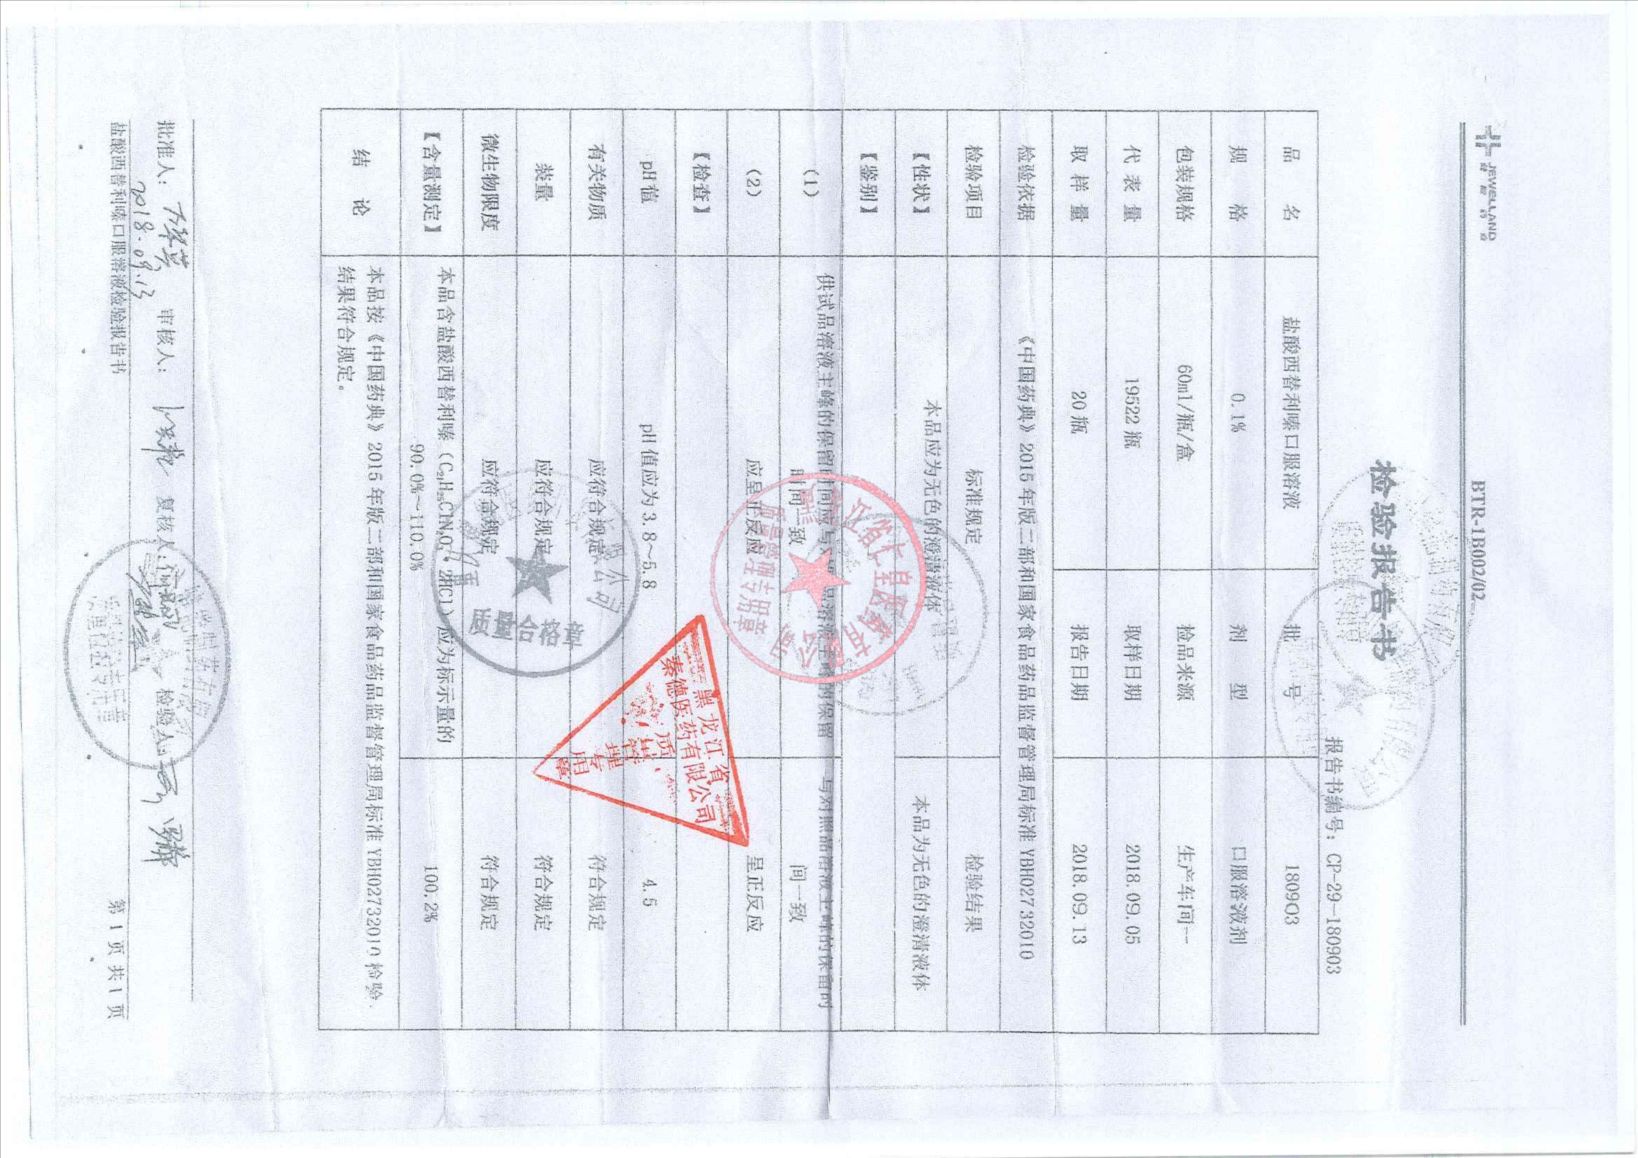 JEWELLAND
BTR-1B002/02
检验报告书
报告书编号：CP-29-180903
品 名 盐酸西替利嗪口服溶液 批 号 180903
规 格 0.1% 剂 型 口服溶液剂
包装规格 60ml/瓶/盒 检品来源 生产车间一
代 表 量 19522 瓶 取样日期 2018.09.05
取 样 量 20 瓶 报告日期 2018.09.13
检验依据 《中国药典》2015 年版二部和国家食品药品监督管理局标准 YBH02732010
检验项目 标准规定 检验结果
【性状】 本品应为无色的澄清液体 本品为无色的澄清液体
【鉴别】
（1） 供试品溶液主峰的保留时间应与对照品溶液主峰的保留时间一致 与对照品溶液主峰的保留时间一致
（2） 应呈正反应 呈正反应
【检查】
pH 值 pH 值应为 3.8～5.8 4.5
有关物质 应符合规定 符合规定
装量 应符合规定 符合规定
微生物限度 应符合规定 符合规定
【含量测定】 本品含盐酸西替利嗪（C₂₁H₂₅ClN₂O₃·2HCl）应为标示量的 90.0%～110.0% 100.2%
结 论 本品按《中国药典》2015 年版二部和国家食品药品监督管理局标准 YBH02732010 检验，
结果符合规定。
批准人： 审核人： 复核人： 检验人：
2018.09.13
盐酸西替利嗪口服溶液检验报告书 第 1 页 共 1 页
质量合格章
黑龙江省
泰德医药有限公司
质量管理专用章
质量管理专用章